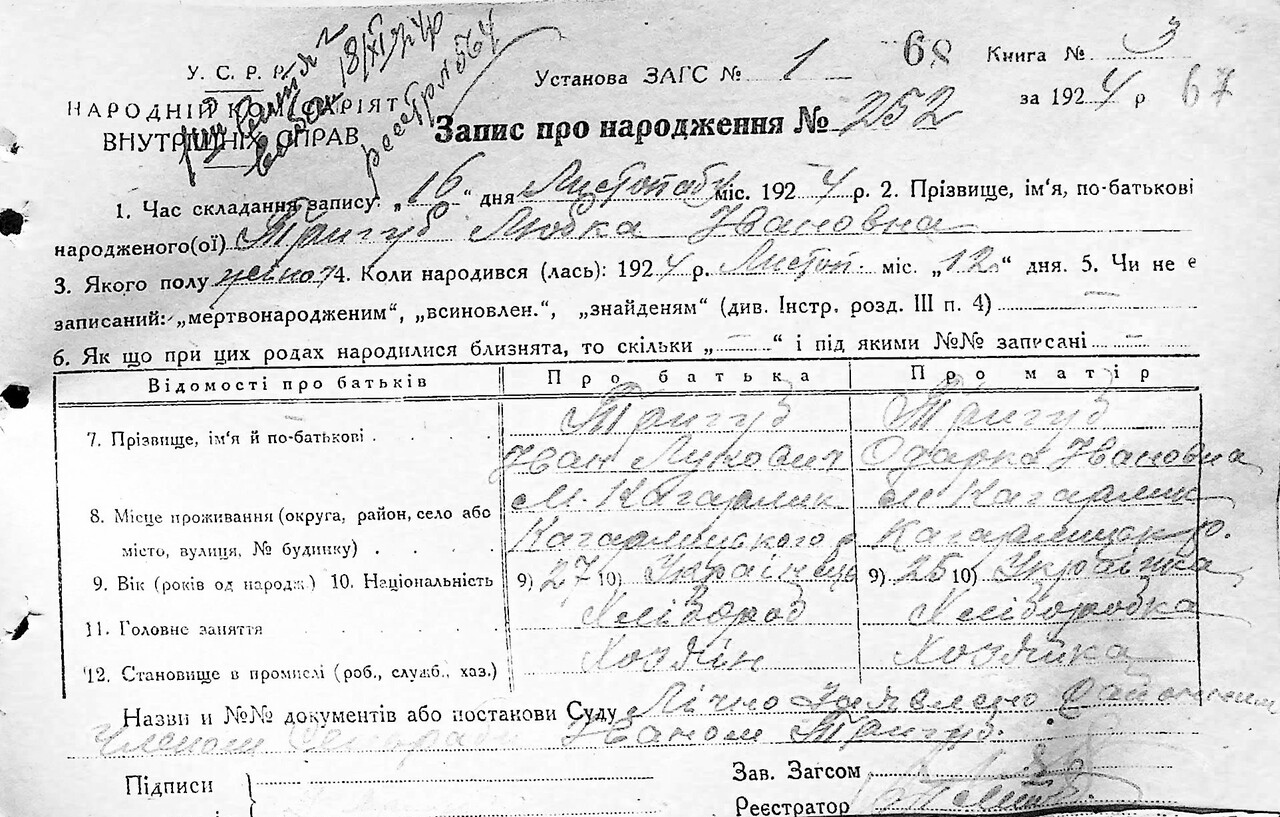 У. С. Р. Р.
НАРОДНІЙ КОМІСАРІЯТ
ВНУТРІШНІХ СПРАВ
18/XI
реєстр № 564
Установа ЗАГС № 1
68
Книга № 3
за 1924 р
67
Запис про народження № 252
1. Час складання запису: „16“ дня Листопаду міс. 1924 р. 2. Прізвище, ім'я, по-батькові
народженого(ої) Тригуб Любка Івановна
3. Якого полу жіноч 4. Коли народився (лась): 1924 р. Листоп. міс. „12“ дня. 5. Чи не є
записаний: „мертвонародженим“, „всиновлен.“, „знайденям“ (див. Інстр. розд. III п. 4) —
6. Як що при цих родах народилися близнята, то скільки „—“ і під якими №№ записані —
Відомості про батьків Про батька Про матір
7. Прізвище, ім'я й по-батькові Тригуб Тригуб
Іван Лукович Одарка Івановна
8. Місце проживання (округа, район, село або М. Кагарлик М. Кагарлик
місто, вулиця, № будинку) Кагарлицкого р Кагарлицк р.
9. Вік (років од народж.) 10. Національність 9) 27 10) Українець 9) 25 10) Українка
11. Головне заняття Хлібороб Хліборобка
12. Становище в промислі (роб., служб., хаз.) Хозяїн Хозяйка
Назви и №№ документів або постанови Суду Лічно заявлено
Членом Іваном Тригуб.
Підписи
Зав. Загсом
Реєстратор